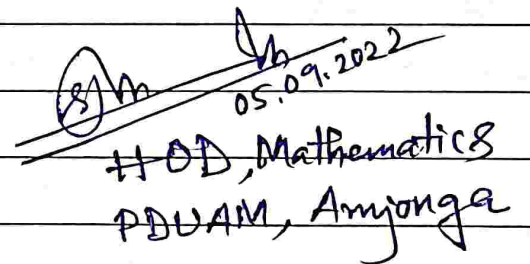 05.09.2022
HOD, Mathematics
PDUAM, Amjonga